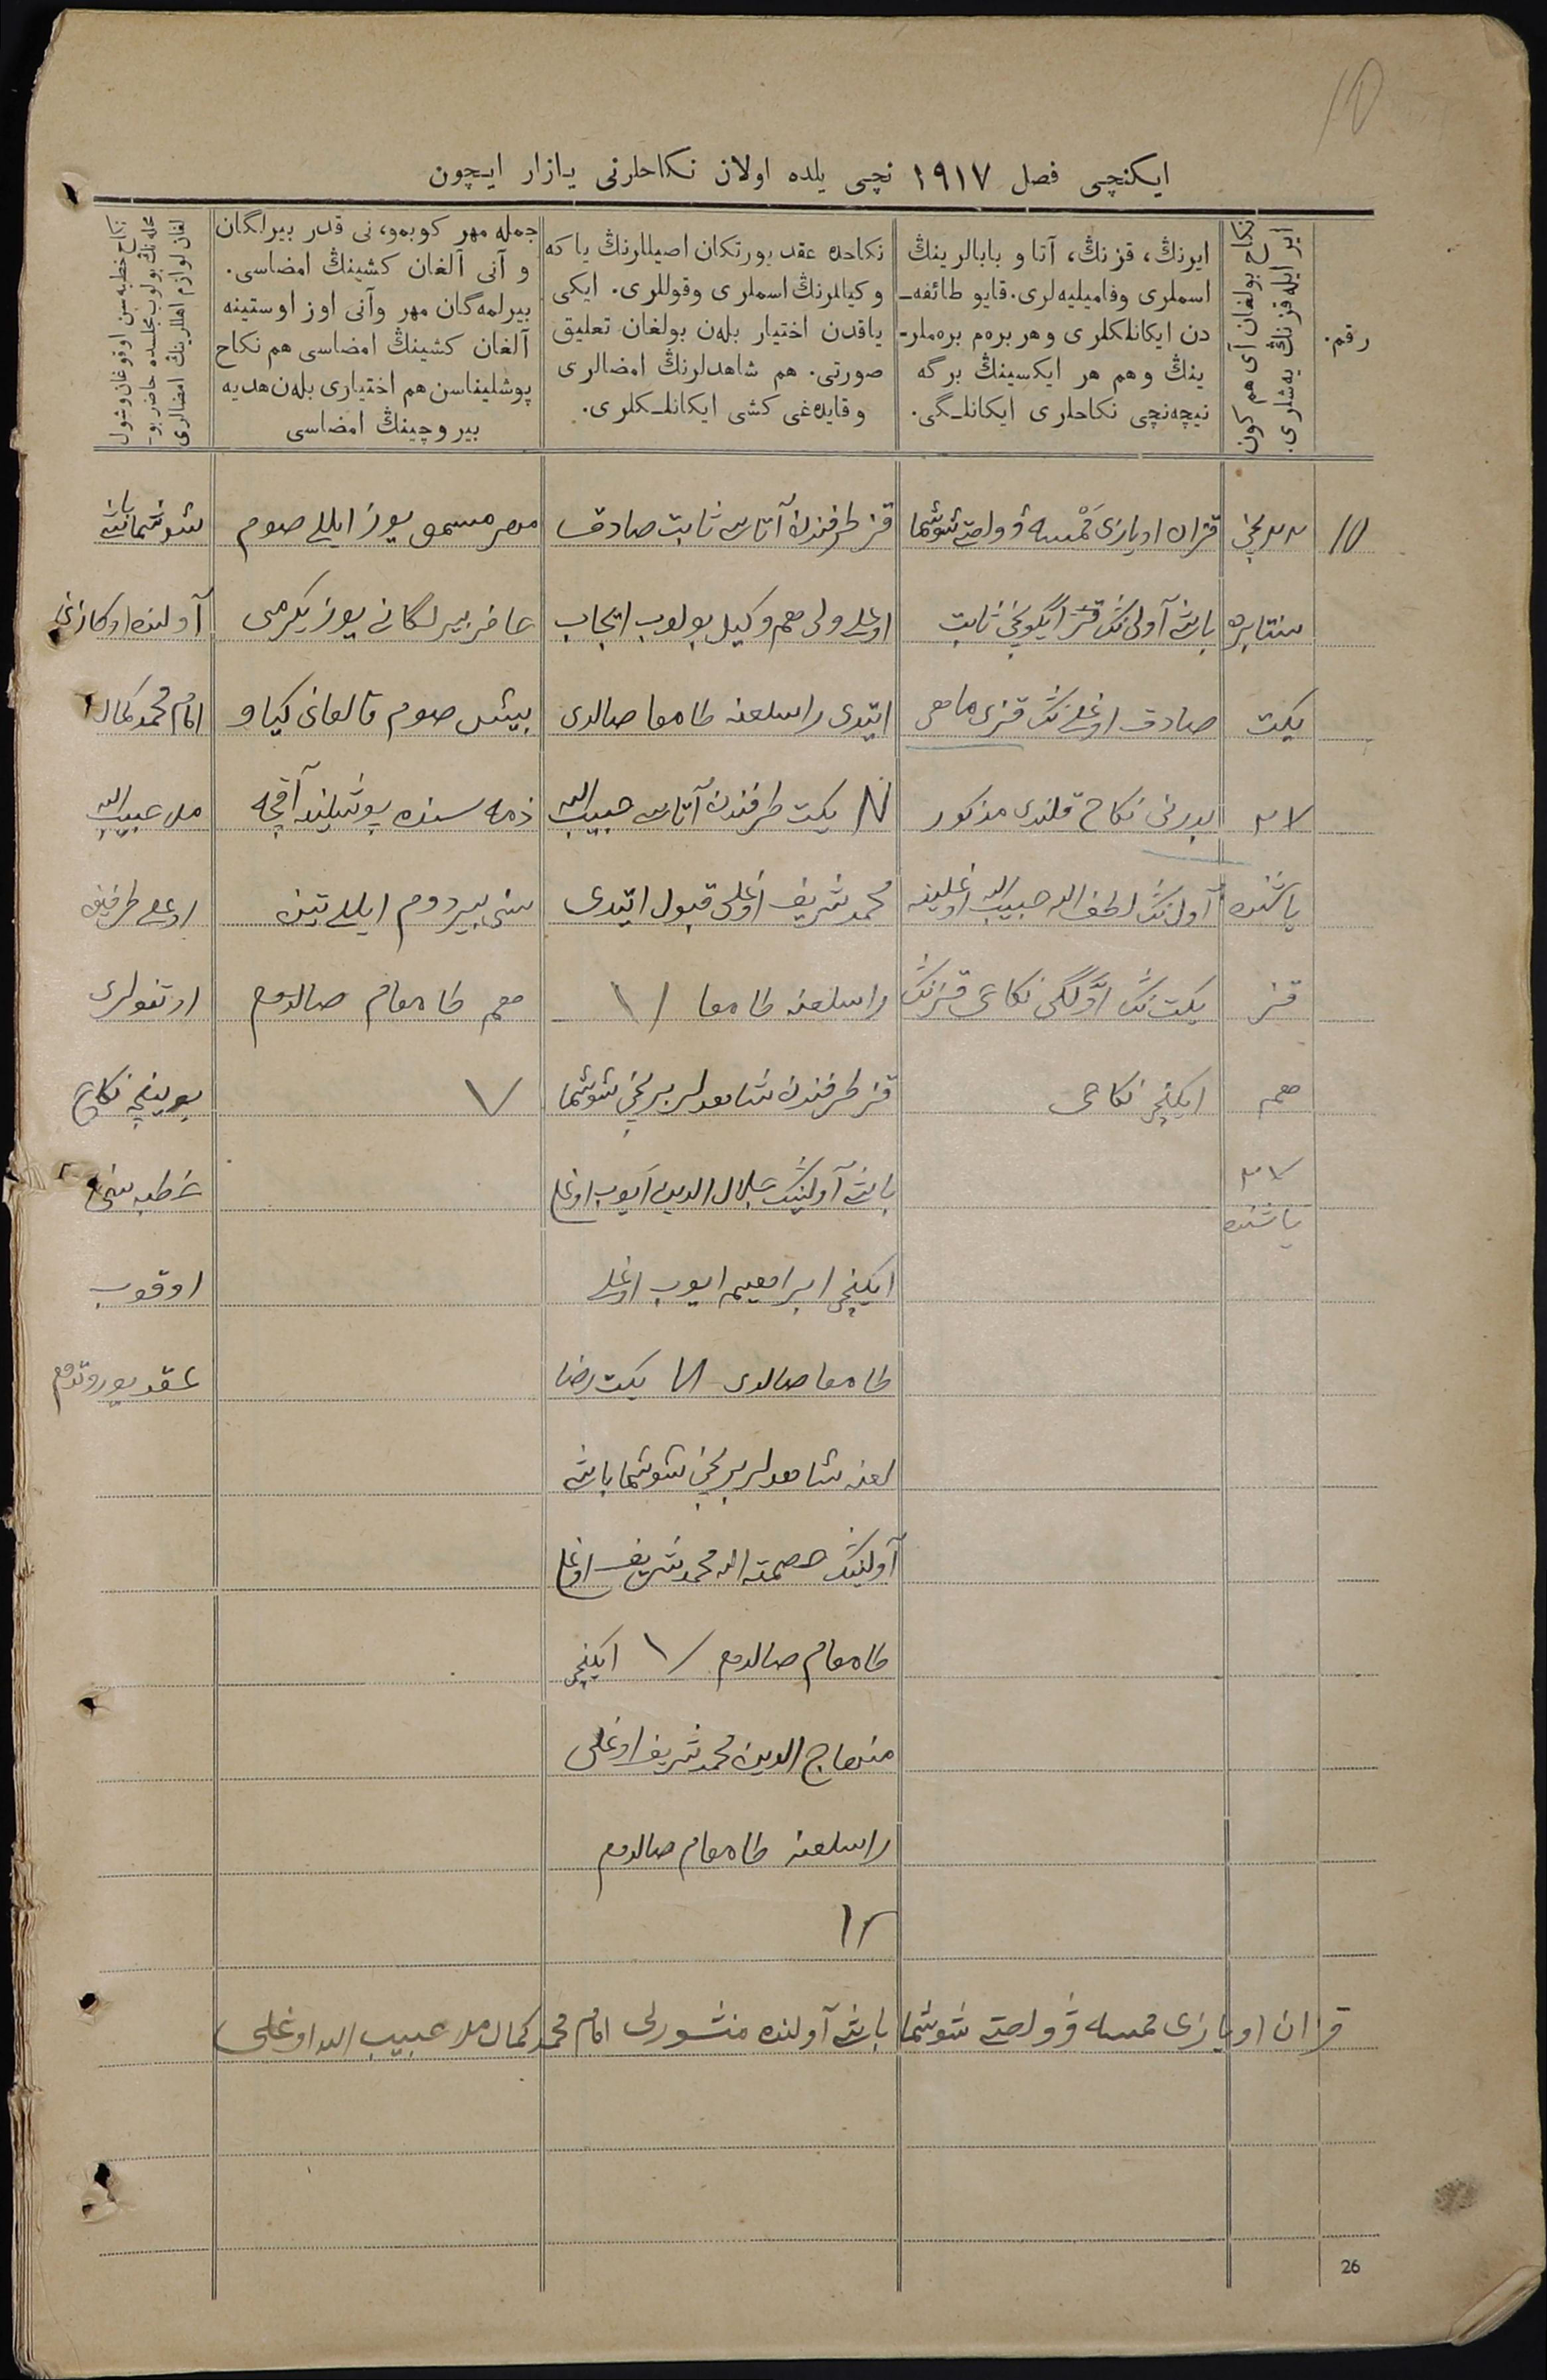 10
ایکنچی فصل ۱۹۱۷ نچی یلده اولان نکاحلرنی یازار ایچون
رقم.
نکاح بولغان آی هم کون
ایر ایله قزنڭ یه‌شلری.
ایرنڭ، قزنڭ، آتا و بابالرینڭ
اسملری وفامیلیه‌لری. قایو طائفه‌ـ
دن ایکانلکلری و هر بره‌م بره‌ملرـ
ینڭ و هم هر ایکسینڭ برگه
نیچه‌نچی نکاحلری ایکانلـگی.
نکاحده عقد یورتکان اصیللرنڭ یا که
وکیللرنڭ اسملری وقوللری. ایکی
یاقدن اختیار بله‌ن بولغان تعلیق
صورتی. هم شاهدلرنڭ امضالری
وقایده‌غی کشی ایکانلـکلری.
جمله مهر کوبمو، نی قدر بیرلگان
و آنی آلغان کشینڭ امضاسی.
بیرلمه‌گان مهر وآنی اوز اوستینه
آلغان کشینڭ امضاسی هم نکاح
پوشلیناسن هم اختیاری بله‌ن هدیه
بیروچینڭ امضاسی
نکاح خطبه‌سین اوقوغان وشول
محله‌نڭ بولوب مجلسده حاضر بو-
لغان لوازم اهللرینڭ امضالری
10
قزان اویازی ممسه ۋولصتی شوشما
باش آولی‌نڭ قز ایگونچی ثابت
صادق اوغلی‌نڭ قزی ماهی
بدرنی نکاح قلندی مذکور
آول‌نڭ لطف الله حبیب الله اوغلینه
یکت‌نڭ اوّلگی نکاحی قزنڭ
ایکنچی نکاحی
سنتابره
یکت
یاشنده
قز
هم
یاشنده
قز طرفندن آتاسی ثابت صادق
اوغلی ولی هم وکیل بولوب ایجاب
ایتدی راسلغنه طامغا صالدی
N یکت طرفندن آتاسی حبیب الله
محمد شریف اوغلی قبول ایتدی
راسلغنه طامغا
قز طرفندن شاهدلر برنچی شوشما
باش آولینڭ جلال الدین ایوب اوغلی
ایکنچی ابراهیم ایوب اوغلی
طامغا صالدی یکت رضا
لغنه شاهدلر برنچی شوشما باش
آولینڭ عصمة الله محمد شریف اوغلی
طامغام صالدم ایکنچی
منهاج الدین محمد شریف اوغلی
راسلغنه طامغام صالدم
مهر مسمی یوز ایللی صوم
حاضر بیرلگانی یوز یکرمی
بیش صوم قالغانی کیاو
ذمه سنده پوشلینه آقچه
سنی بیردم ایللی تین
هم طامغام صالدم
شوشما باش
آولنده اوکازنی
امام محمد کمال
ملا حبیب الله
اوغلی طرفینی
اوتنولری
بوینچه نکاح
خطبه سنی
اوقوب
عقد یوروتدم
قزان اویازی ممسه ۋولصتی شوشما باش آولنده منشورلی امام محمد کمال ملا حبیب الله اوغلی
26